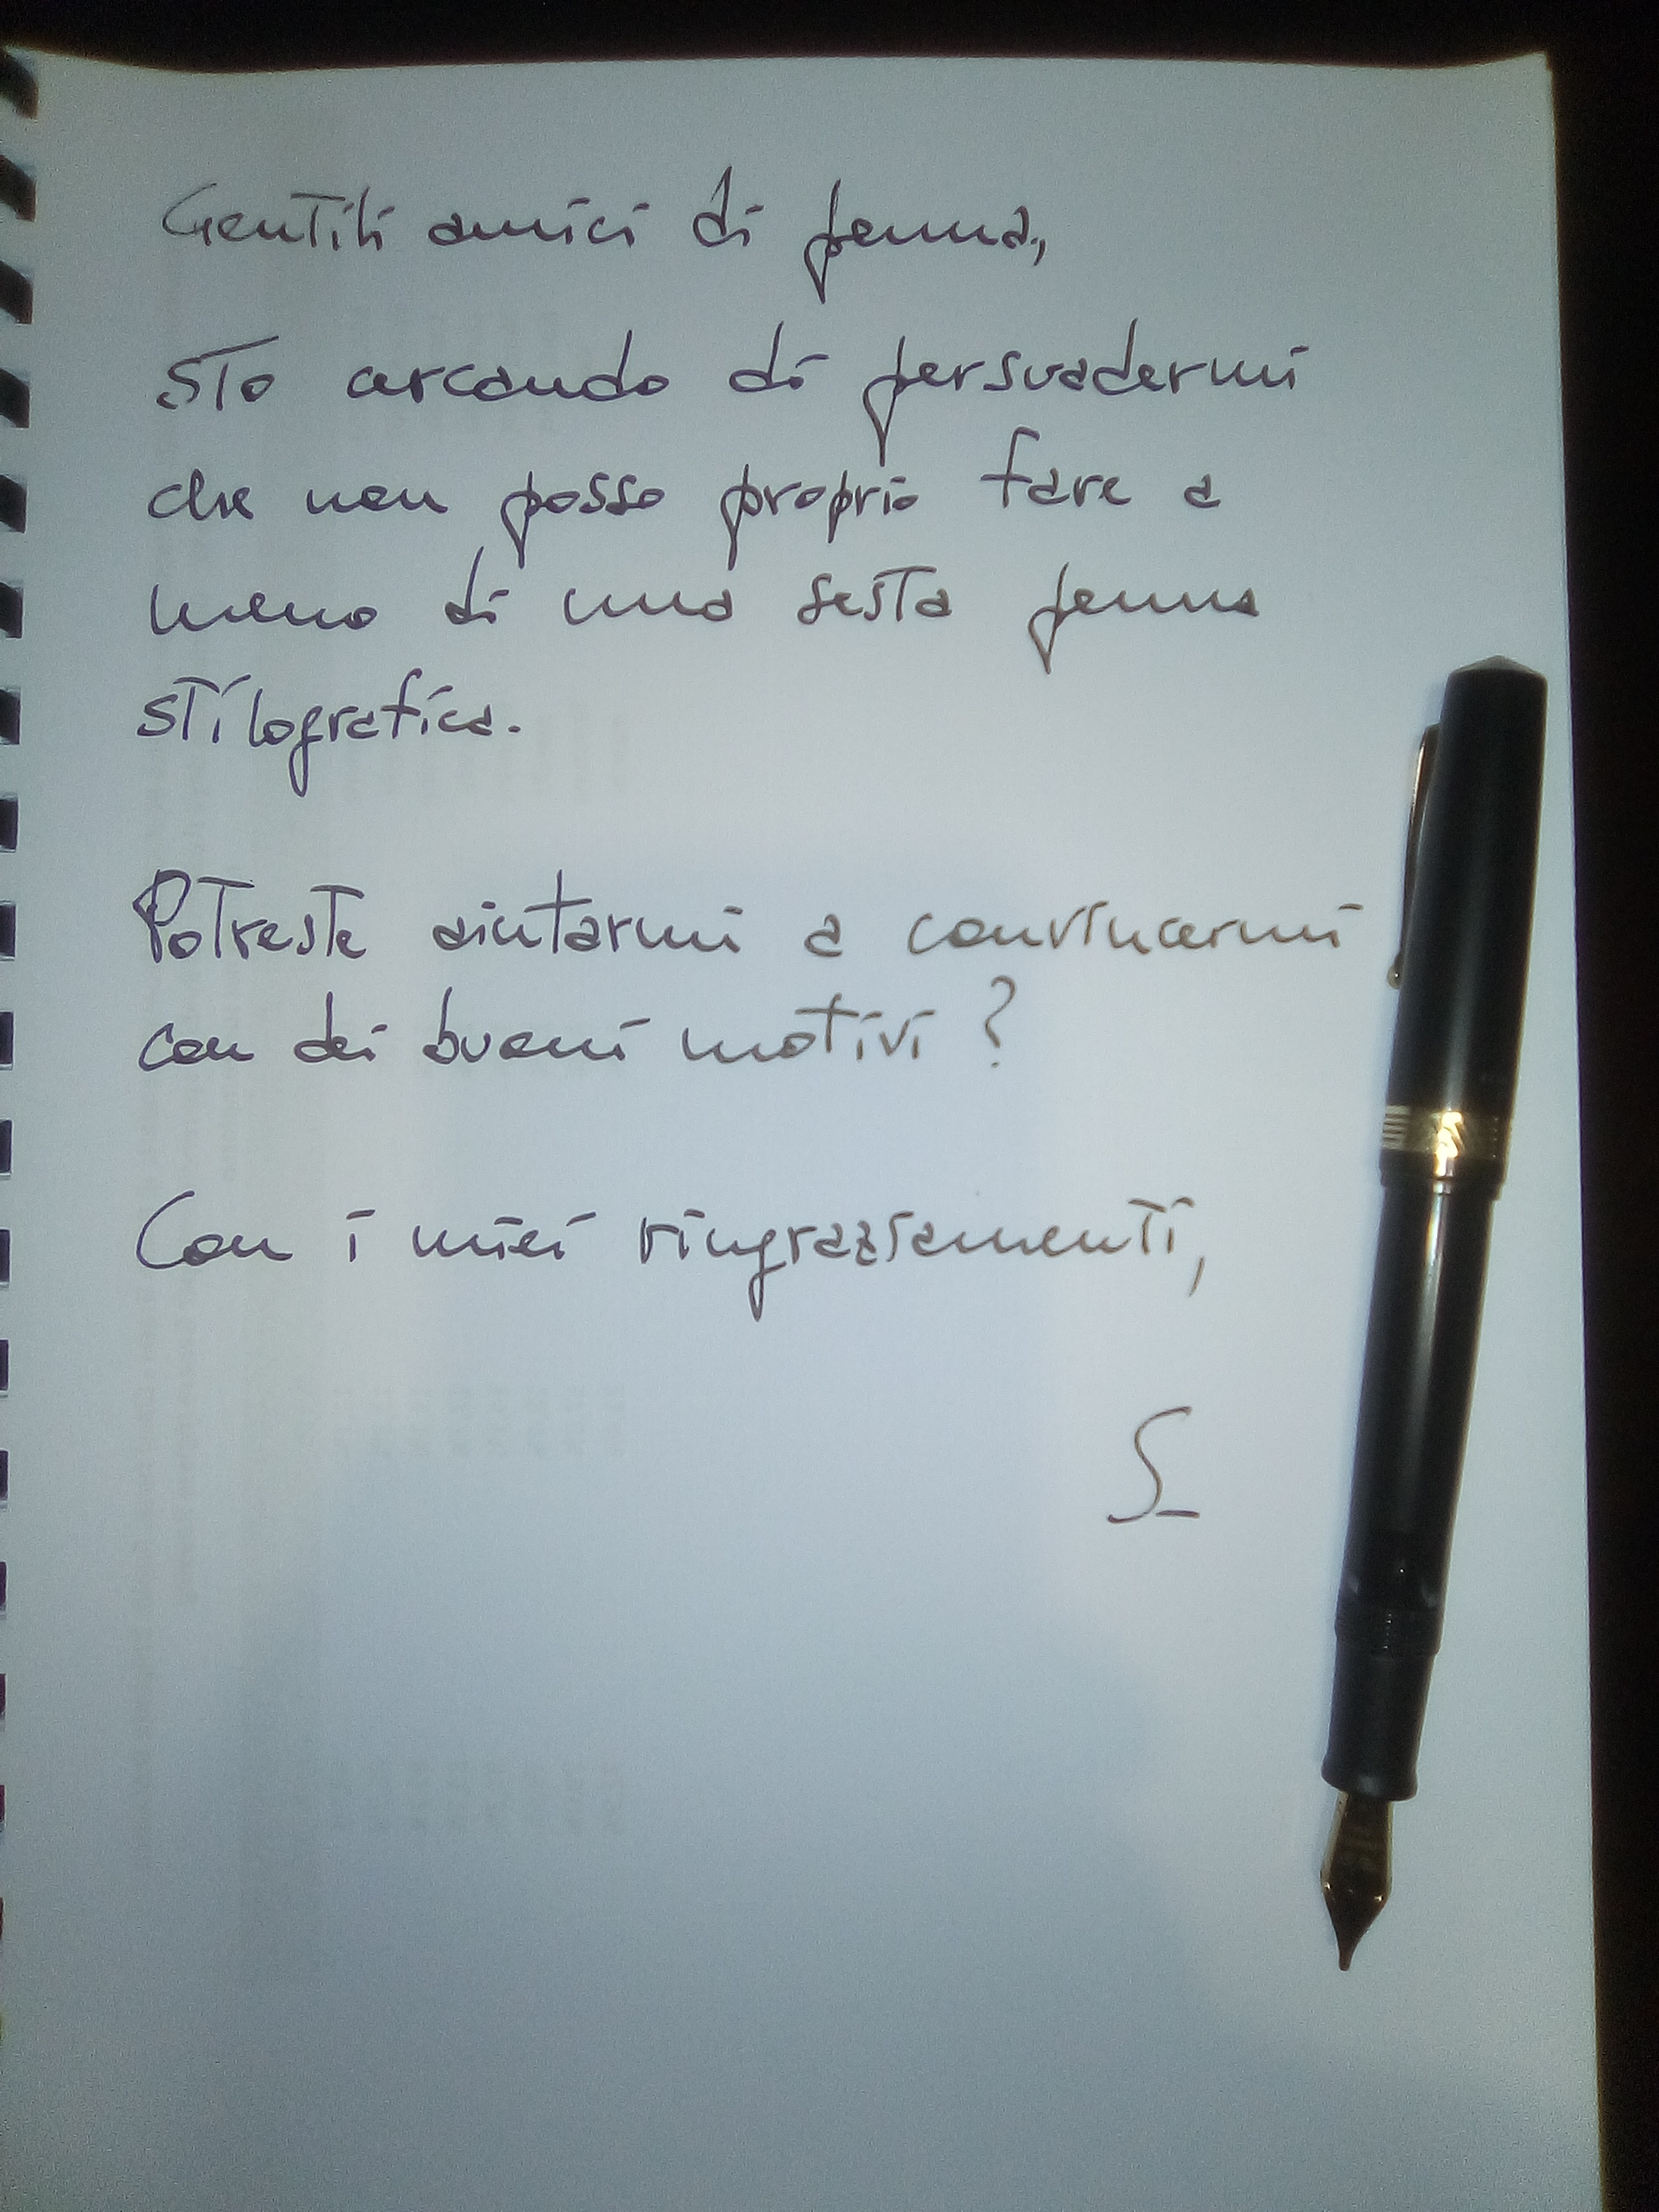 Gentili amici di penna,
sto cercando di persuadermi
che non posso proprio fare a
meno di una sesta penna
stilografica.
Potreste aiutarmi a convincermi
con dei buoni motivi ?
Con i miei ringraziamenti,
S